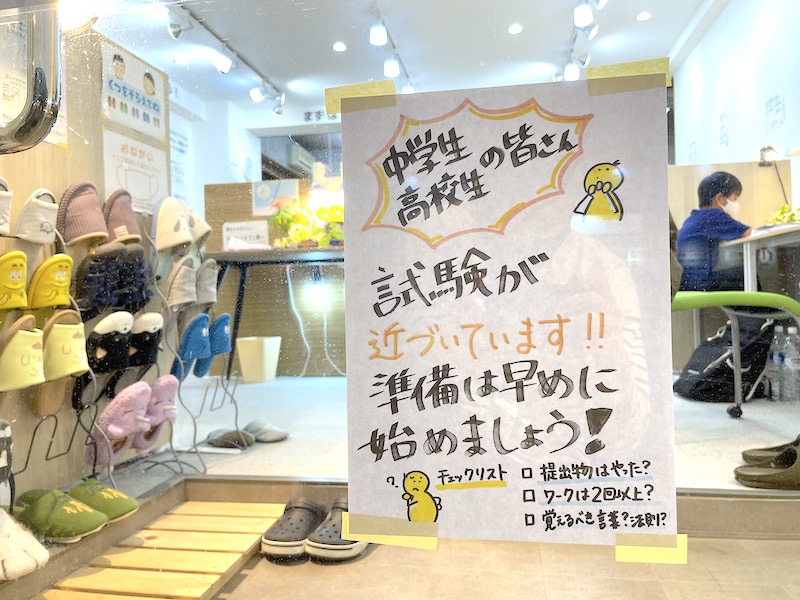 くつをそろえてね
お ねがい
まずは
中学生
高校生
の皆さん
試験が
近づいています!!
準備は早めに
始めましょう!
?
チェックリスト
□ 提出物はやった?
□ ワークは2回以上?
□ 覚えるべき言葉?法則?